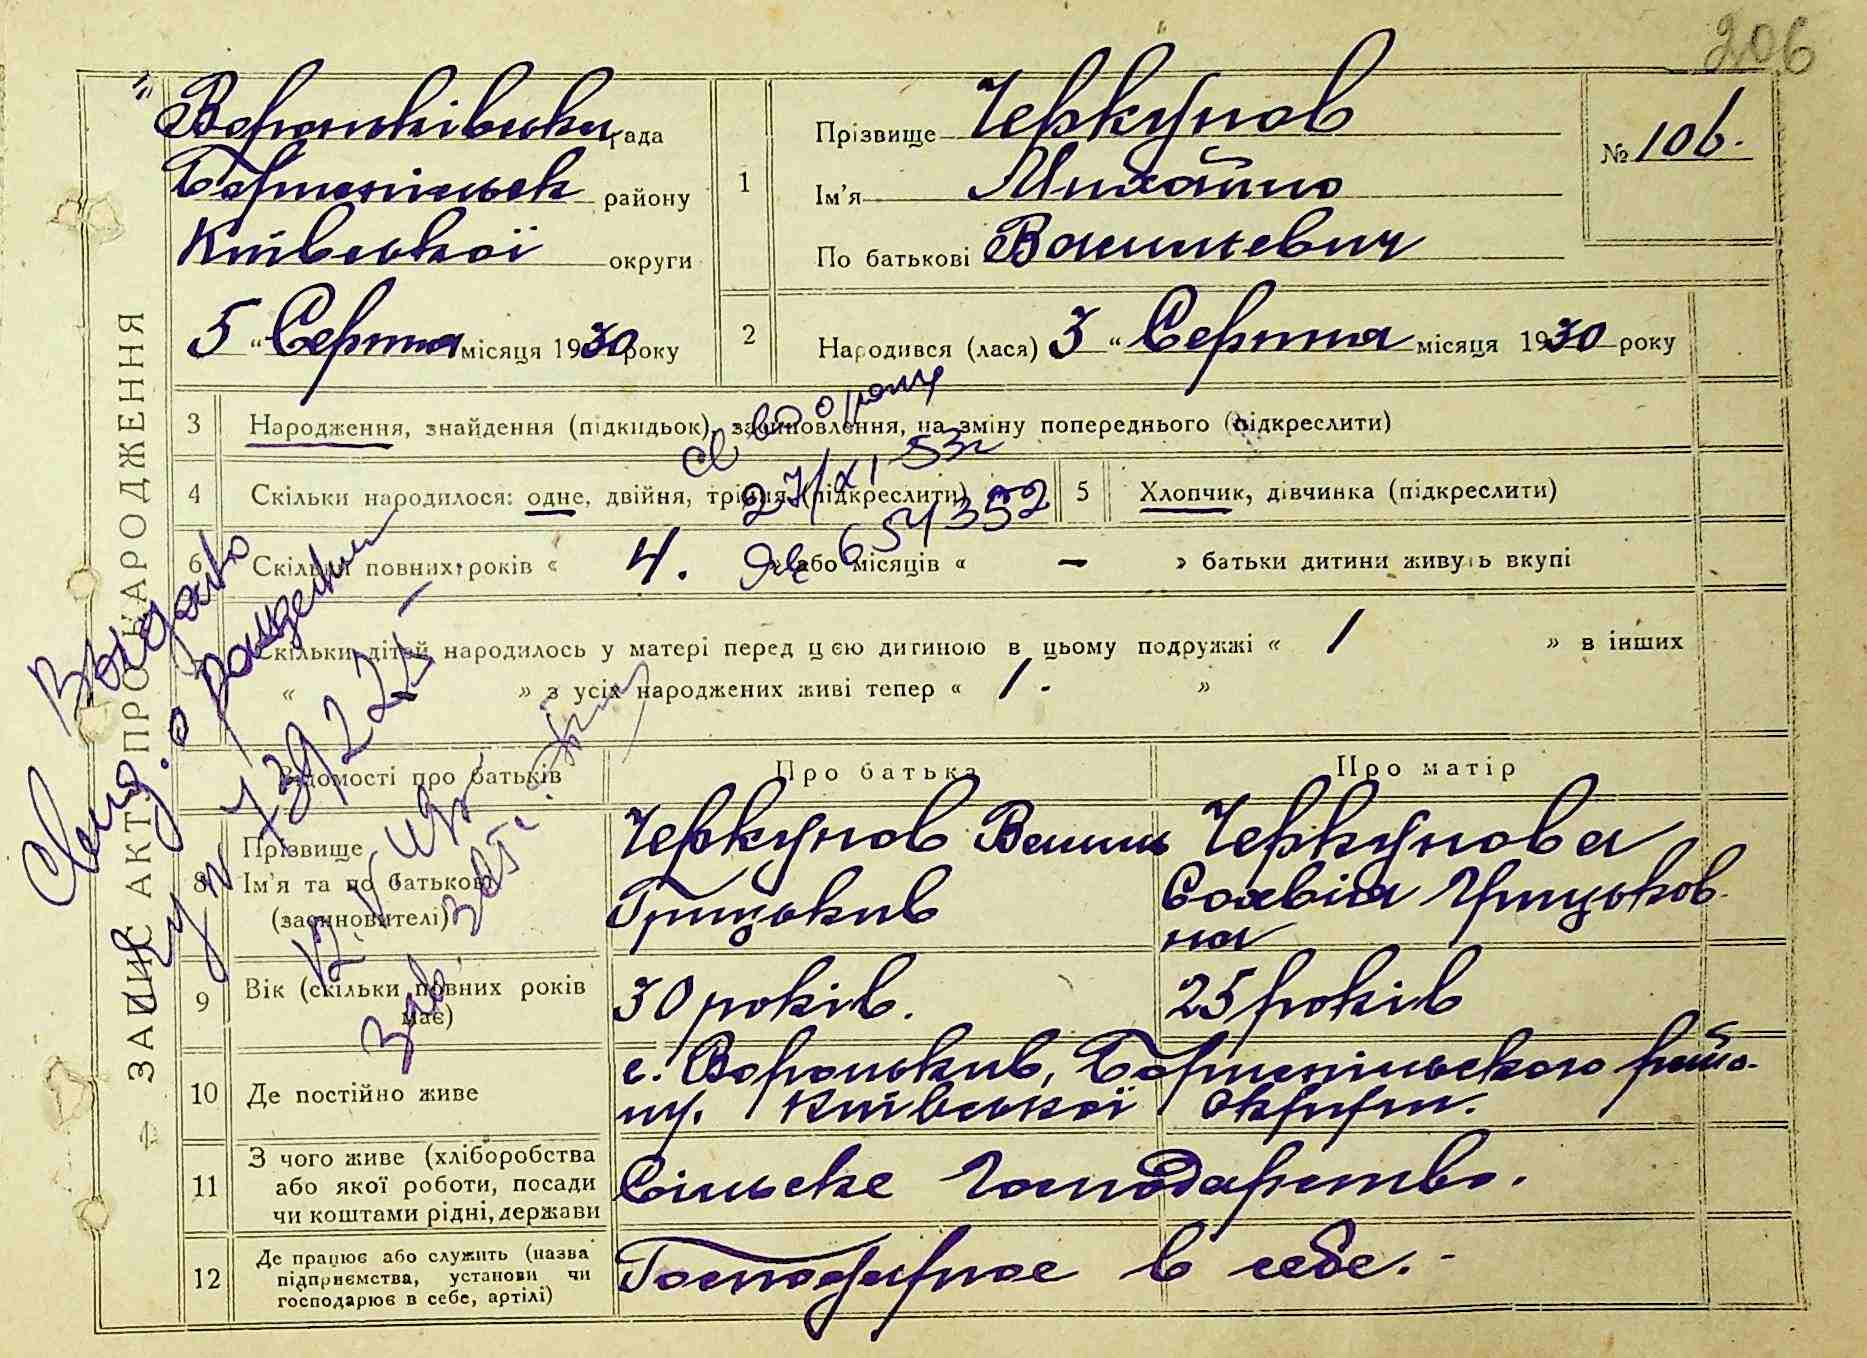 206
ЗАПИС АКТУ ПРО НАРОДЖЕННЯ
Вороньківська рада
Бориспільськ району
Київської округи
5 "Серпня місяця 1930 року
1
Прізвище Черкунов
Ім'я Михайло
По батькові Васильевич
№ 106.
2 Народився (лася) 3 "Серпня місяця 1930 року
3 Народження, знайдення (підкидьок), засиновлення, на зміну попереднього (підкреслити)
4 Скільки народилося: одне, двійня, трійня (підкреслити)
5 Хлопчик, дівчинка (підкреслити)
6 Скільки повних років « 4. » або місяців « — » батьки дитини живуть вкупі
7 Скільки дітей народилось у матері перед цією дитиною в цьому подружжі « 1 » в інших
« - » з усіх народжених живі тепер « 1. »
27/XI 53г
654352
Выдано
Свид. о рождении
Відомості про батьків
Про батька
Про матір
8 Прізвище
Ім'я та по батькові
(засиновителі)
Черкунов Василь
Грицьков
Черкунова
Соловія Грицьков-
на
9 Вік (скільки повних років
має)
30 років.
25 років
10 Де постійно живе
с. Вороньков, Бориспільського райо-
ну. Київської Округи.
11 З чого живе (хліборобства
або якої роботи, посади
чи коштами рідні, держави
Сільске Господарство.
12 Де працює або служить (назва
підприємства, установи чи
господарює в себе, артілі)
Господарює в себе.-